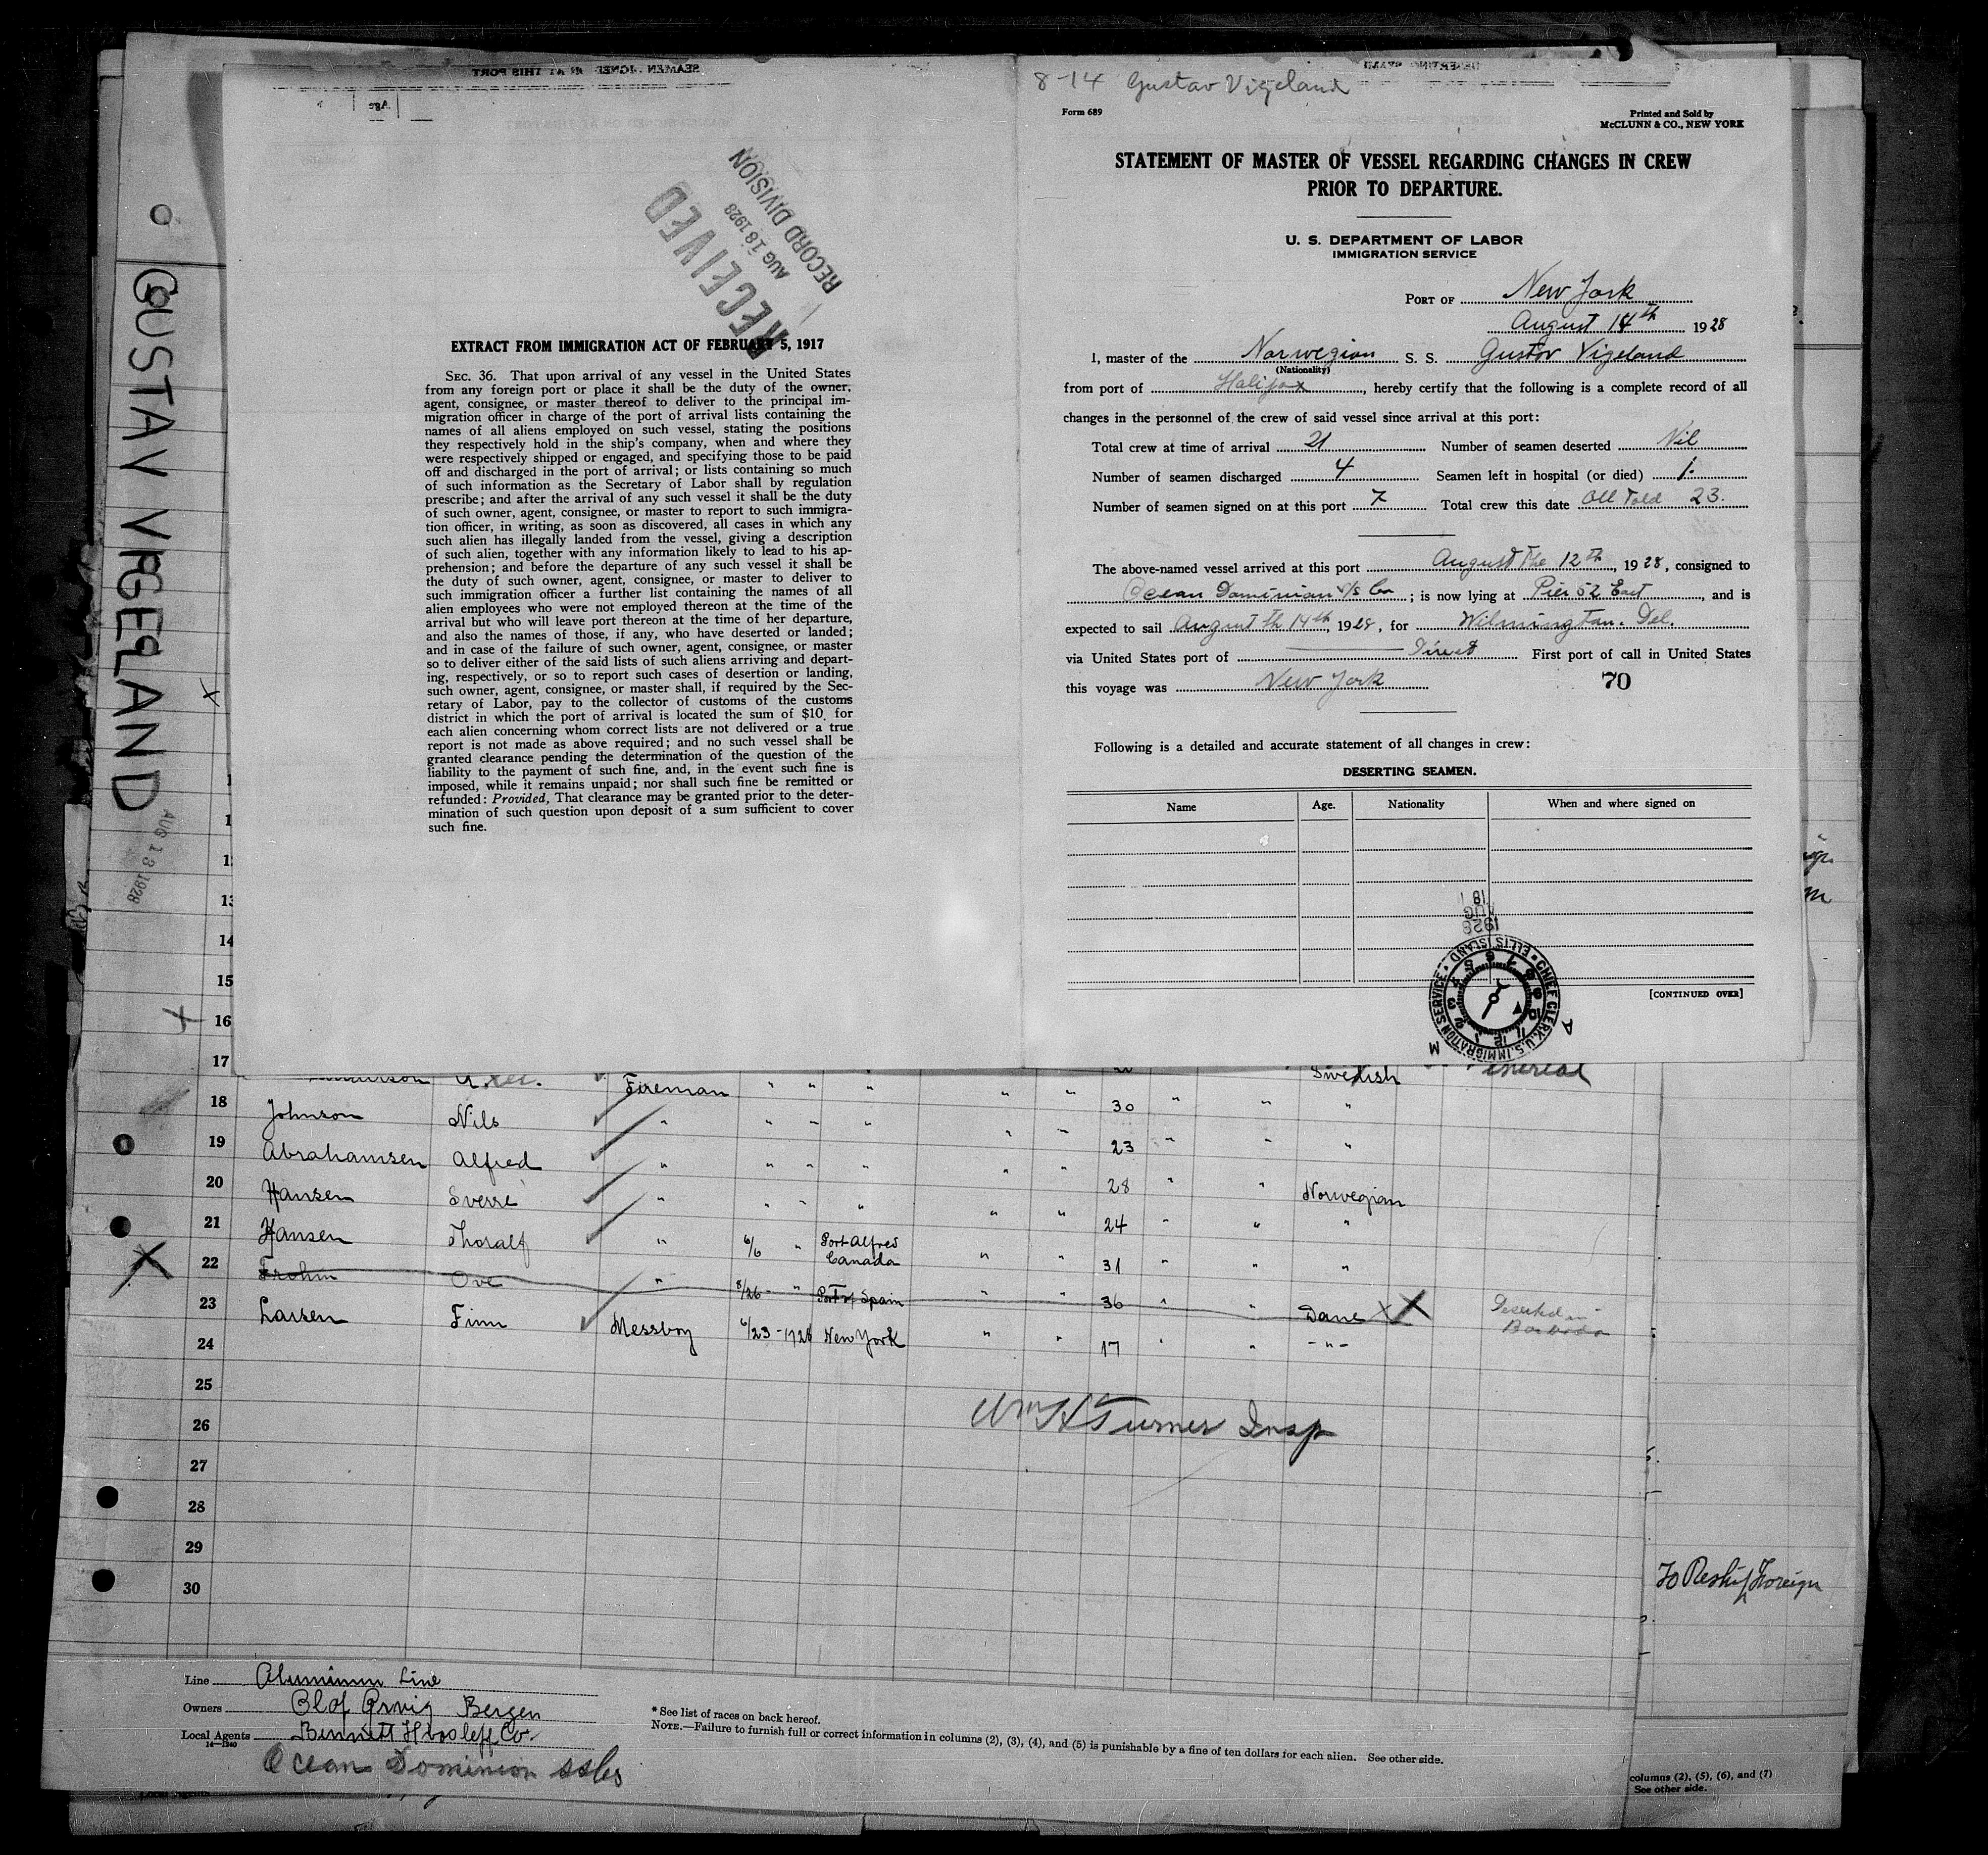 8-14 Gustav Vigeland
Form 689
Printed and Sold by
McCLUNN & CO., NEW YORK
STATEMENT OF MASTER OF VESSEL REGARDING CHANGES IN CREW
PRIOR TO DEPARTURE.
U. S. DEPARTMENT OF LABOR
IMMIGRATION SERVICE
PORT OF New York
August 14th 1928
I, master of the Norwegian S. S. Gustav Vigeland
(Nationality)
from port of Halifax, hereby certify that the following is a complete record of all
changes in the personnel of the crew of said vessel since arrival at this port:
Total crew at time of arrival 21 Number of seamen deserted Nil
Number of seamen discharged 4 Seamen left in hospital (or died) 1.
Number of seamen signed on at this port 7 Total crew this date All Told 23.
The above-named vessel arrived at this port August The 12th, 1928, consigned to
Ocean Dominion S/S Co; is now lying at Pier 52 East, and is
expected to sail August th 14th, 1928, for Wilmington. Del.
via United States port of Direct First port of call in United States
this voyage was New York 70
Following is a detailed and accurate statement of all changes in crew:
DESERTING SEAMEN.
Name Age. Nationality When and where signed on
[CONTINUED OVER]
18
AUG
1928
CHIEF CLERK, U.S. IMMIGRATION SERVICE • ELLIS ISLAND
SEAMEN SIGNED ON AT THIS PORT
Age
RECEIVED
AUG 18 1928
RECORD DIVISION
EXTRACT FROM IMMIGRATION ACT OF FEBRUARY 5, 1917
SEC. 36. That upon arrival of any vessel in the United States
from any foreign port or place it shall be the duty of the owner,
agent, consignee, or master thereof to deliver to the principal im-
migration officer in charge of the port of arrival lists containing the
names of all aliens employed on such vessel, stating the positions
they respectively hold in the ship's company, when and where they
were respectively shipped or engaged, and specifying those to be paid
off and discharged in the port of arrival; or lists containing so much
of such information as the Secretary of Labor shall by regulation
prescribe; and after the arrival of any such vessel it shall be the duty
of such owner, agent, consignee, or master to report to such immigra-
tion officer, in writing, as soon as discovered, all cases in which any
such alien has illegally landed from the vessel, giving a description
of such alien, together with any information likely to lead to his ap-
prehension; and before the departure of any such vessel it shall be
the duty of such owner, agent, consignee, or master to deliver to
such immigration officer a further list containing the names of all
alien employees who were not employed thereon at the time of the
arrival but who will leave port thereon at the time of her departure,
and also the names of those, if any, who have deserted or landed;
and in case of the failure of such owner, agent, consignee, or master
so to deliver either of the said lists of such aliens arriving and depart-
ing, respectively, or so to report such cases of desertion or landing,
such owner, agent, consignee, or master shall, if required by the Sec-
retary of Labor, pay to the collector of customs of the customs
district in which the port of arrival is located the sum of $10 for
each alien concerning whom correct lists are not delivered or a true
report is not made as above required; and no such vessel shall be
granted clearance pending the determination of the question of the
liability to the payment of such fine, and, in the event such fine is
imposed, while it remains unpaid; nor shall such fine be remitted or
refunded: Provided, That clearance may be granted prior to the deter-
mination of such question upon deposit of a sum sufficient to cover
such fine.
GUSTAV VIGELAND
AUG 13 1928
14
15
16
17 Axel. Fireman " " " " " Swedish
18 Johnson Nils " " " " " " 30 " " "
19 Abrahamsen Alfred " " " " " " 23 " " "
20 Hansen Sverre " " " " " " 28 " " Norwegian
21 Hansen Thoralf " 6/6 " Port Alfred Canada " " 24 " " "
22 Frohm Ove " 8/26 " Port of Spain " " 31 " " "
23 Larsen Finn Messboy 6/23-1928 New York " " 36 " " Dane X X Deserted in
24 17 " " -"-
25
26
27
28
29
30
Wm H Turner Insp
To Reship Foreign
Line Aluminum Line
Owners Olaf Orvig Bergen
Local Agents Bennett Hvoslef Co.
14—1240
Ocean Dominion SSCo
* See list of races on back hereof.
NOTE.—Failure to furnish full or correct information in columns (2), (3), (4), and (5) is punishable by a fine of ten dollars for each alien. See other side.
columns (2), (5), (6), and (7)
See other side.